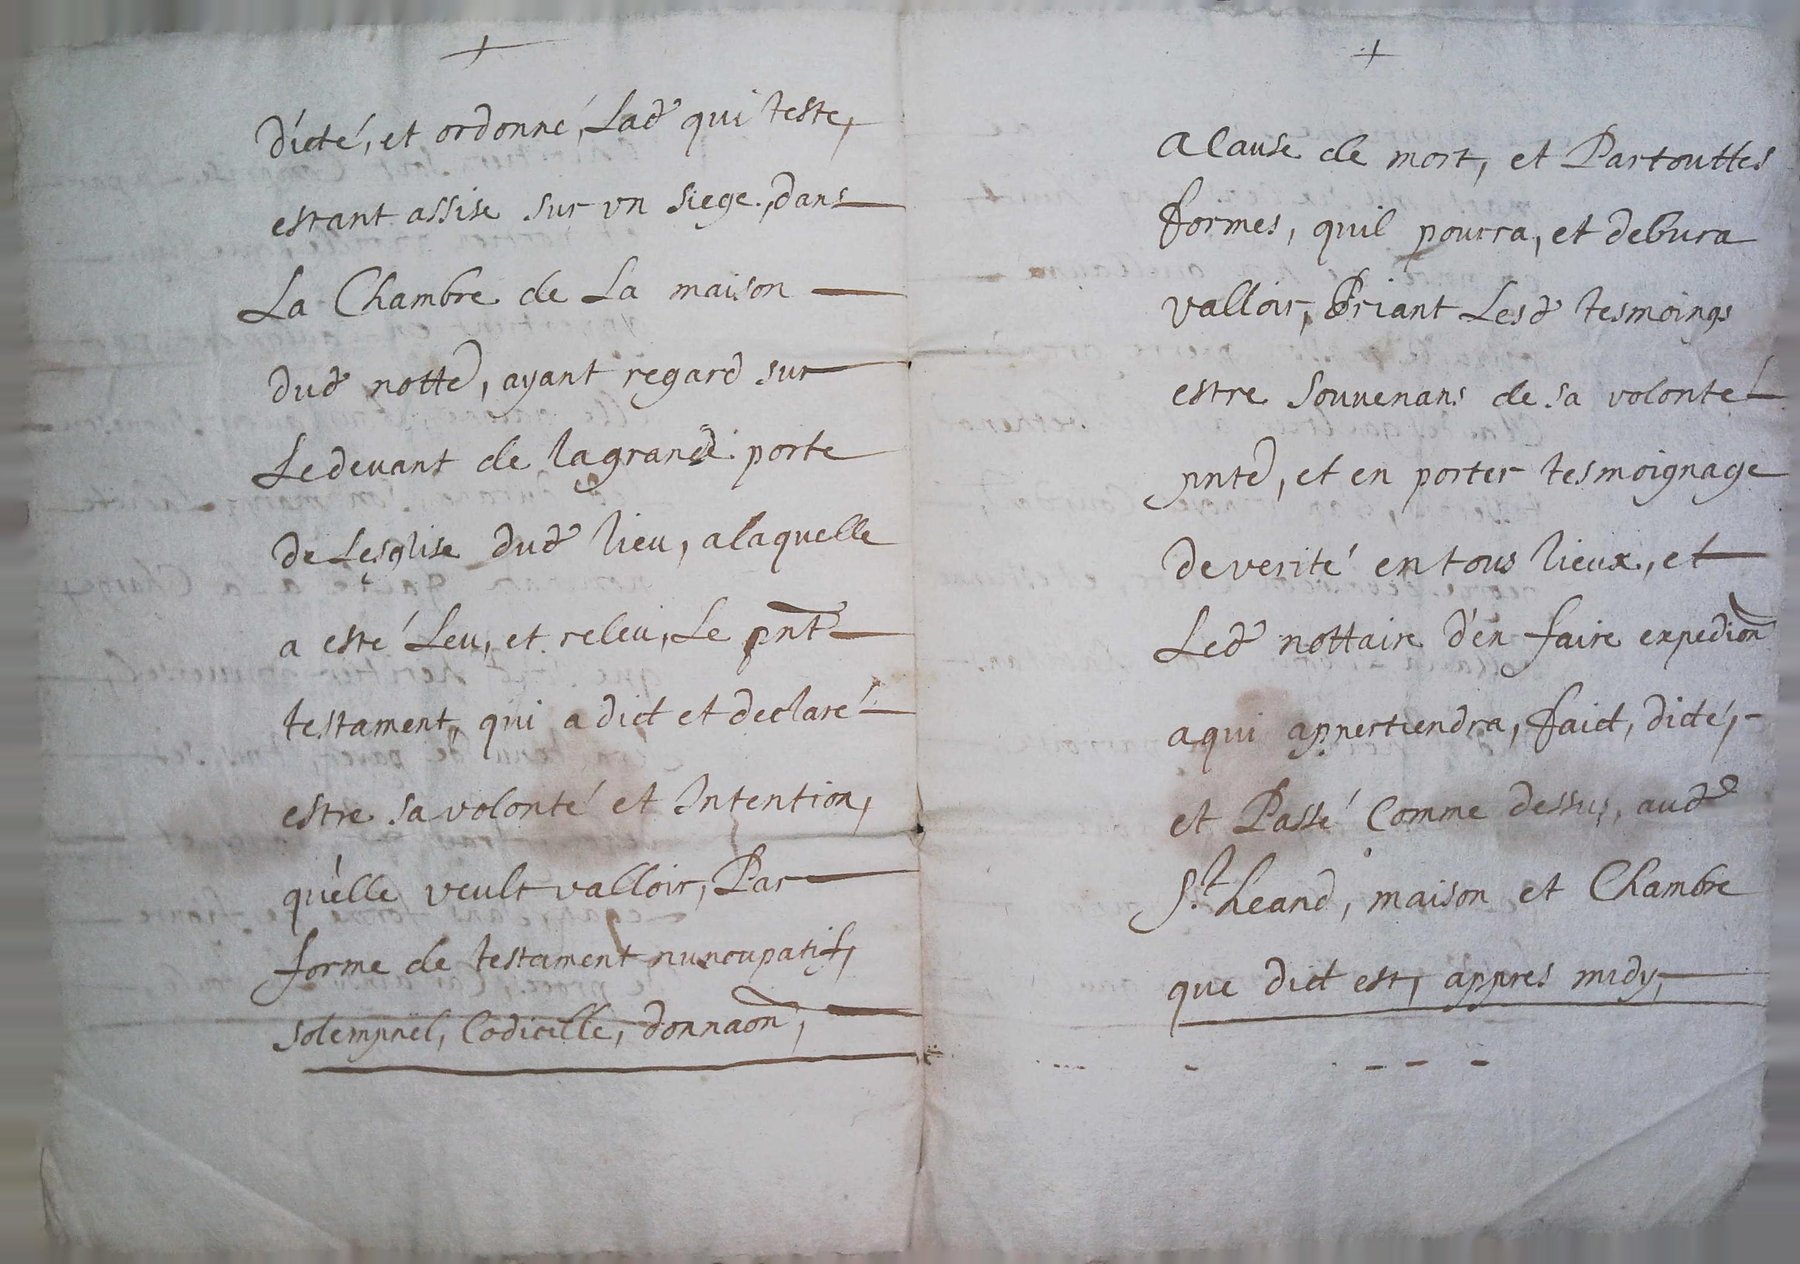 +
dicté, et ordonné, Lad^e qui teste,
estant assise sur vn siege, dans
La Chambre de La maison
dud^t nott^e, ayant regard sur
Le devant de la grande porte
de Lesglise dud^t lieu, a laquelle
a esté Leu, et releu, Le pnt
testament, qui a dict et declaré
estre sa volonté et Intention,
qu'elle veult valloir, Par
forme de testament nuncupatif,
solempnel, Codicille, donnaon,
+
a Cause de mort, et Par touttes
formes, quil pourra, et debura
valloir, Priant Lesd^s tesmoings
estre Souuenans de sa volonté
pnte, et en porter tesmoignage
de verité en tous lieux, et
Led^t nottaire d'en faire expedion
a qui appertiendra, faict, dicté,
et Passé Comme dessus, aud^t
S^t heand, maison et Chambre
que dict est, appres midy,